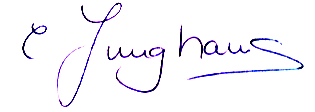 C Junghans